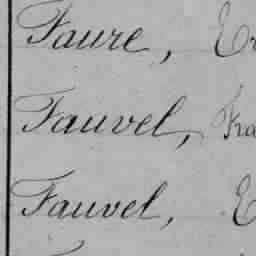 Faure,
Fauvel, Fra
Fauvel, E